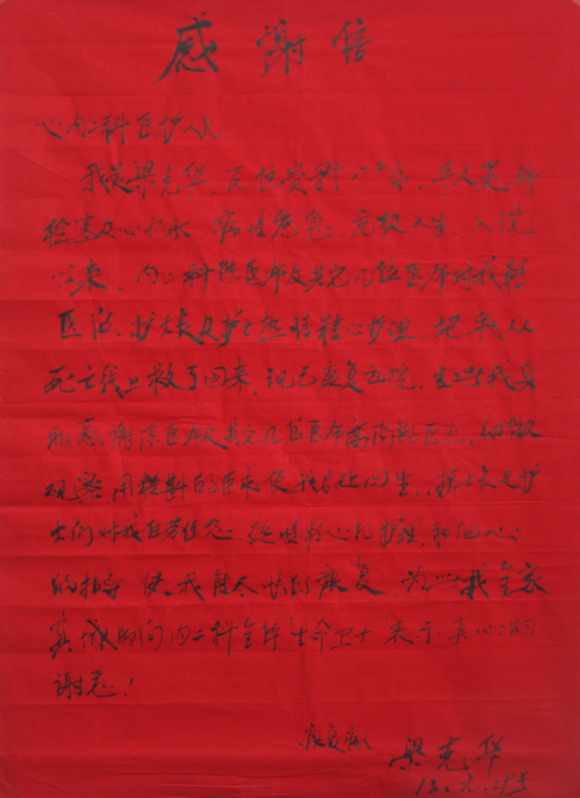 感谢信
心内二科医护人员:
我是梁克华,瓦住贵科 床,本人是肺
检害及心积水 病性危急,危救人生,入院
以来,内二科陈医师及其它几位医师对我精
医治,护士长及护士热情精心护理,把我从
死亡线上救了回来,现已康复出院,在此我真
心感谢陈医师及其它几位医师高尚的医德,细微
观察,用精斟的医术使我起死回生,护士长及护
士们对我百劳任怨 热情精心的护理,和细心
的指导 使我能尽快的康复 为此我全家
真诚的向内二科全体生命卫士表示真心的
谢意!
康复病人
梁克华
13.元.29号